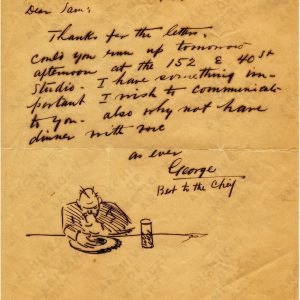 Dear Sam:
Thanks for the letter.
could you run up tomorrow
afternoon at the 152 E 40 St
Studio. I have something im-
portant I wish to communicate
to you. also why not have
dinner with me
as ever
George
Best to the Chief